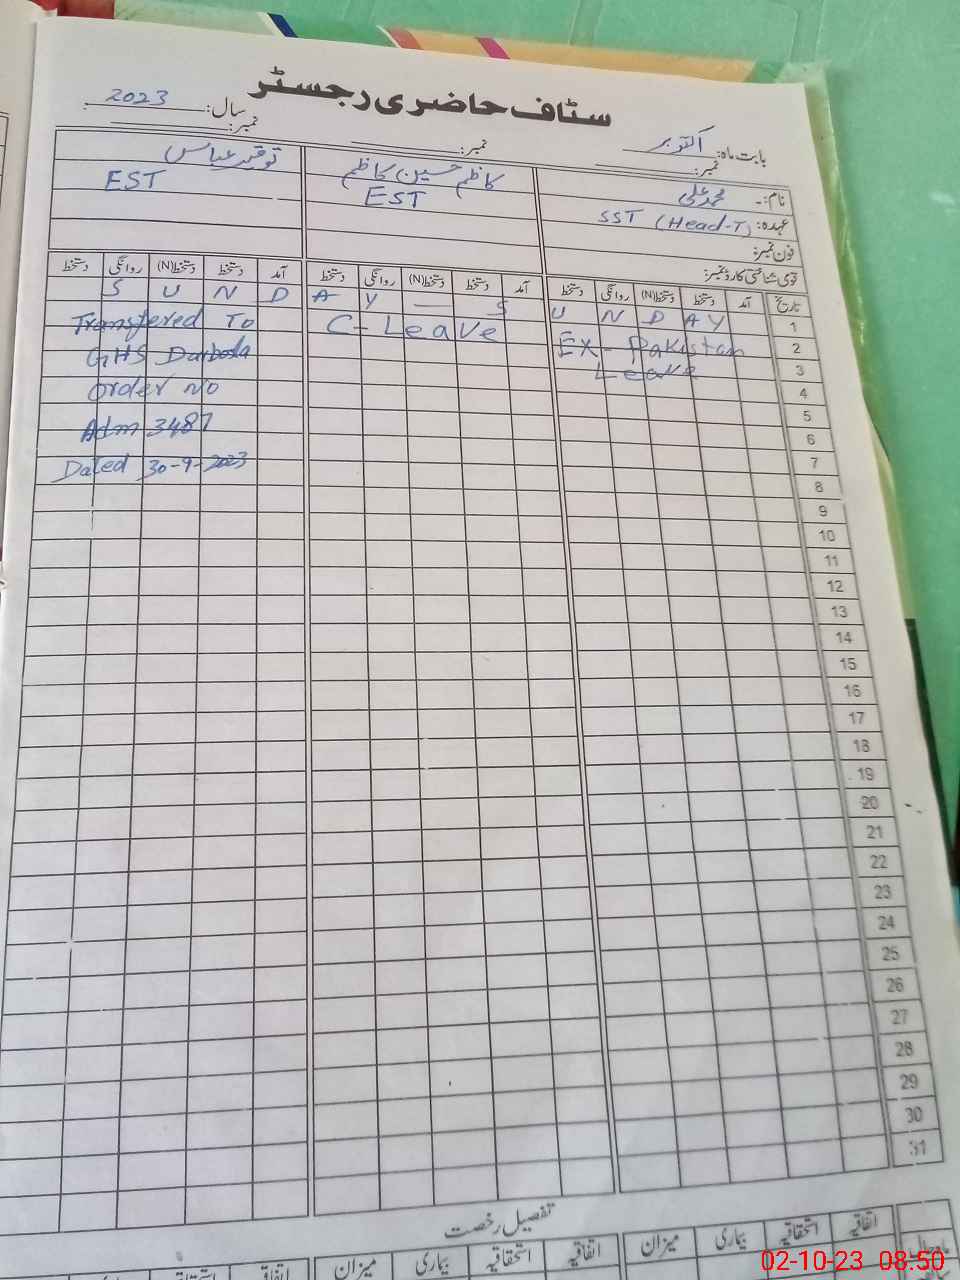 سٹاف حاضری رجسٹر
بابت ماہ: اکتوبر سال: 2023
نمبر: نمبر: نمبر:
نام:۔ محمد علی
کاظم حسین کاظم
توقیر عباس
عہدہ: SST (Head-T)
EST
EST
فون نمبر:
قومی شناختی کارڈ نمبر:
تاریخ آمد دستخط دستخط(N) روانگی دستخط آمد دستخط دستخط(N) روانگی دستخط آمد دستخط دستخط(N) روانگی دستخط
S U N D A Y — S U N D A Y 1
Transfered To C-Leave Ex-Pakistan 2
GHS Leave 3
Order No 4
5
Adm 3487 6
Dated 30-9-2023 7
8
9
10
11
12
13
14
15
16
17
18
19
20
21
22
23
24
25
26
27
28
29
30
31
تفصیل رخصت
اتفاقیہ استحقاقیہ بیماری میزان اتفاقیہ استحقاقیہ بیماری میزان اتفاقیہ استحقاقیہ بیماری
02-10-23 08:50